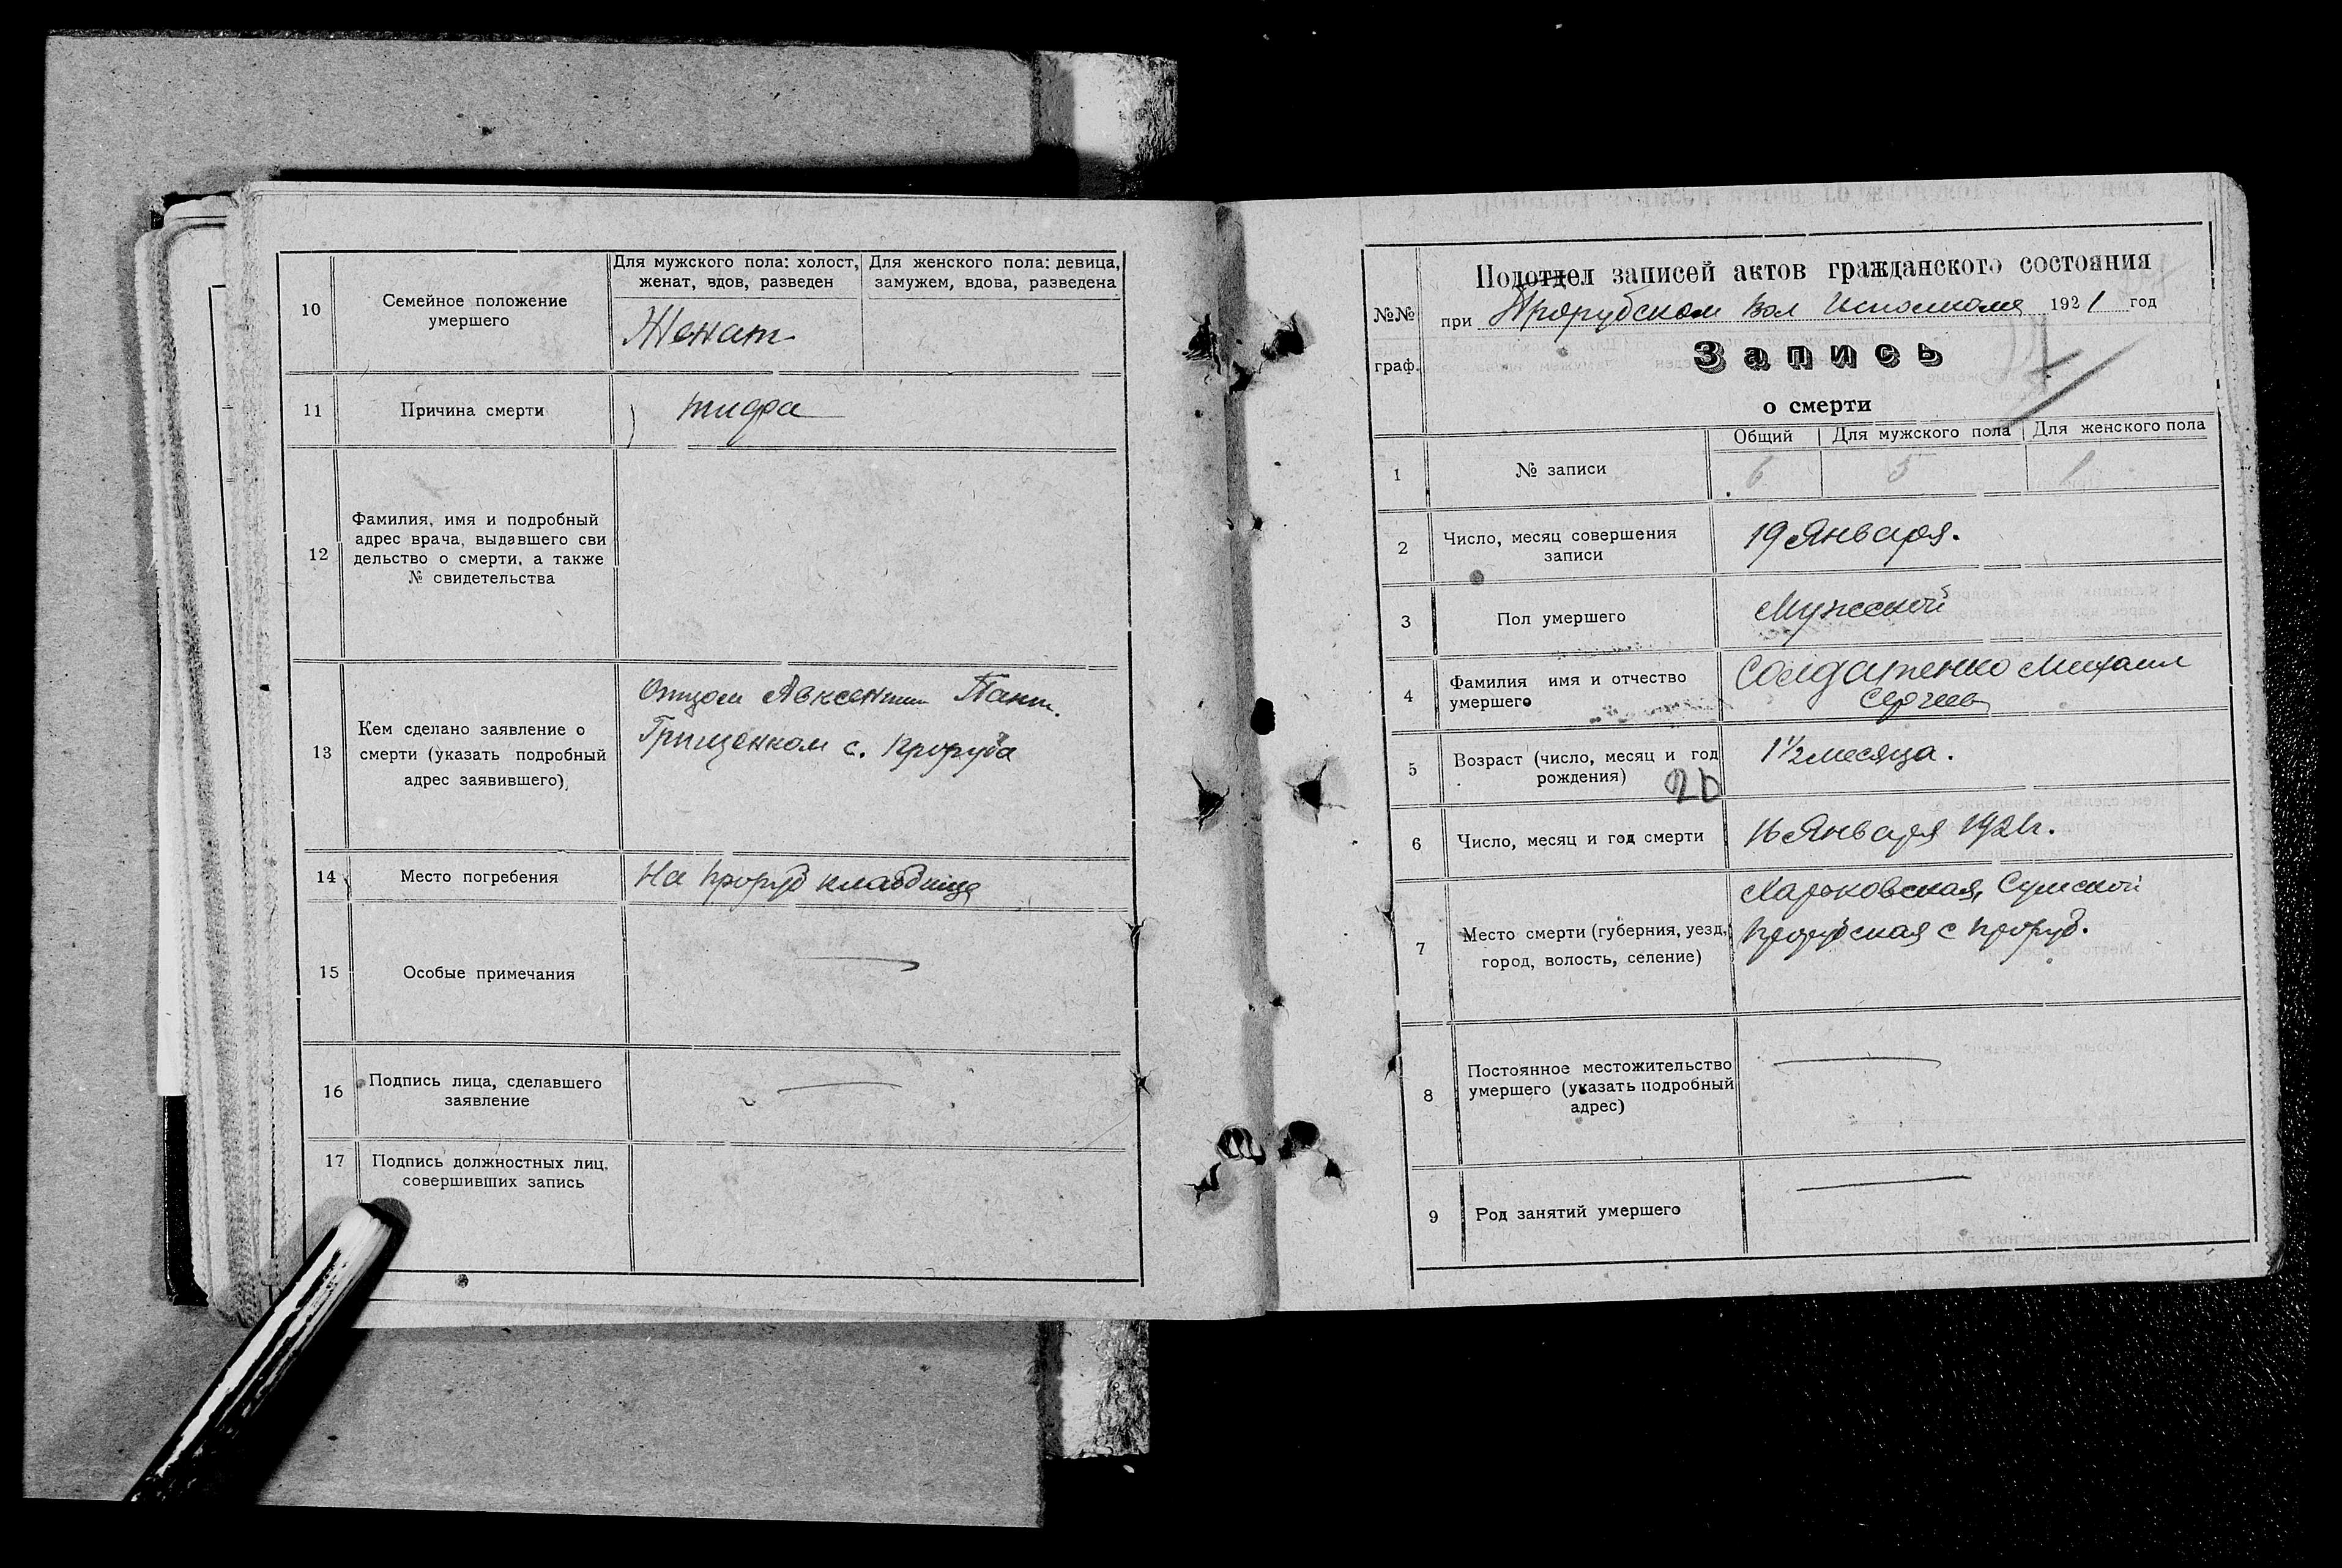 10
Семейное положение
умершего
Для мужского пола: холост,
женат, вдов, разведен
Для женского пола: девица,
замужем, вдова, разведена
Женат
11
Причина смерти
тифа
12
Фамилия, имя и подробный
адрес врача, выдавшего сви
дельство о смерти, а также
№ свидетельства
13
Кем сделано заявление о
смерти (указать подробный
адрес заявившего)
Отцом Авксентии Пант.
Грищенком с. Проруба
14
Место погребения
На Проруб кладбище
15
Особые примечания
16
Подпись лица, сделавшего
заявление
17
Подпись должностных лиц,
совершивших запись
№№
граф.
Подотдел записей актов гражданского состояния
при Прорубском Вол Исполкоме 1921 год
Запись
о смерти
1
№ записи
Общий
Для мужского пола
Для женского пола
6
5
1
2
Число, месяц совершения
записи
19 Января.
3
Пол умершего
Мужской
4
Фамилия имя и отчество
умершего
Солдатенко Михаил
Сергеев
5
Возраст (число, месяц и год
рождения)
1½ месяца.
6
Число, месяц и год смерти
16 Января 1921г.
7
Место смерти (губерния, уезд,
город, волость, селение)
Харьковская, Сумской
Прорубская с Проруб.
8
Постоянное местожительство
умершего (указать подробный
адрес)
9
Род занятий умершего